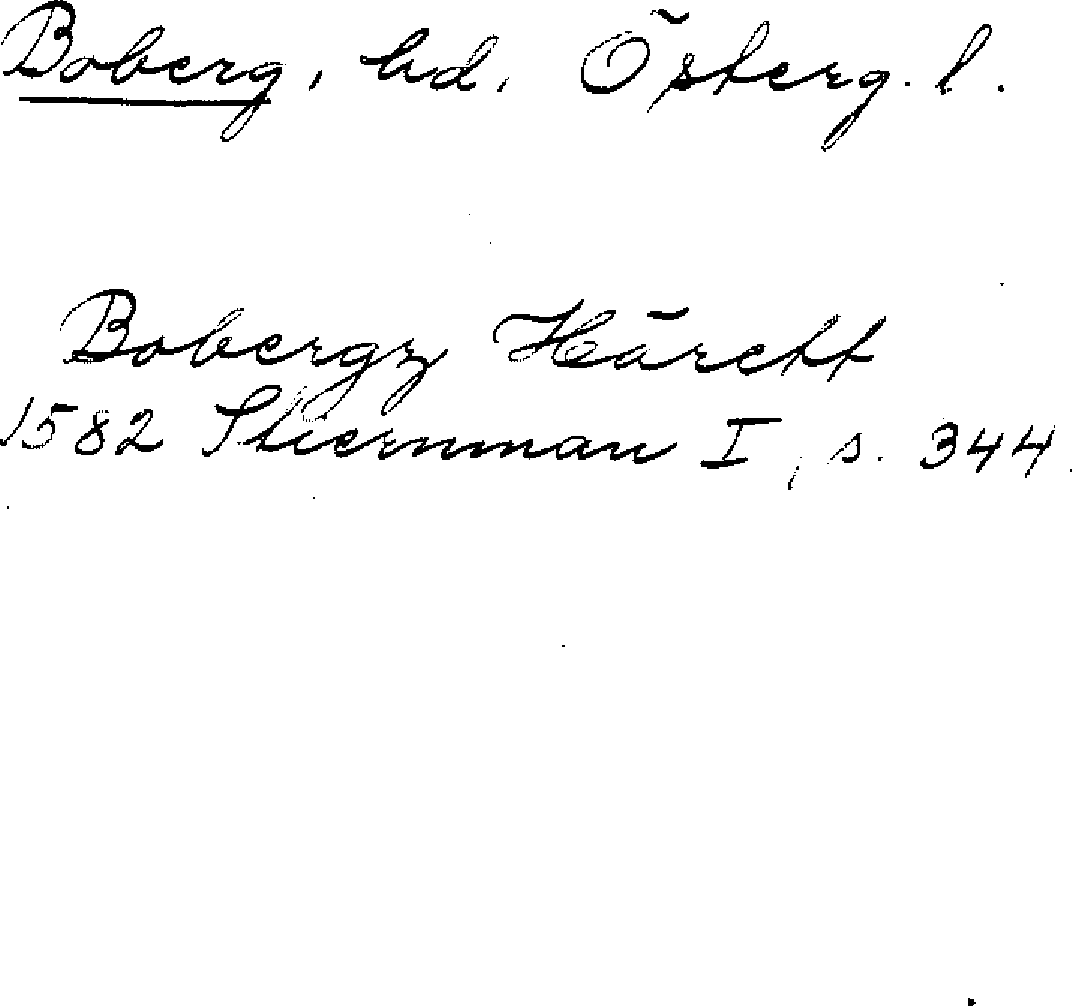 Boberg, hd, Österg. l.
Bobergz Häredt
1582 Stiernman I, s. 344.